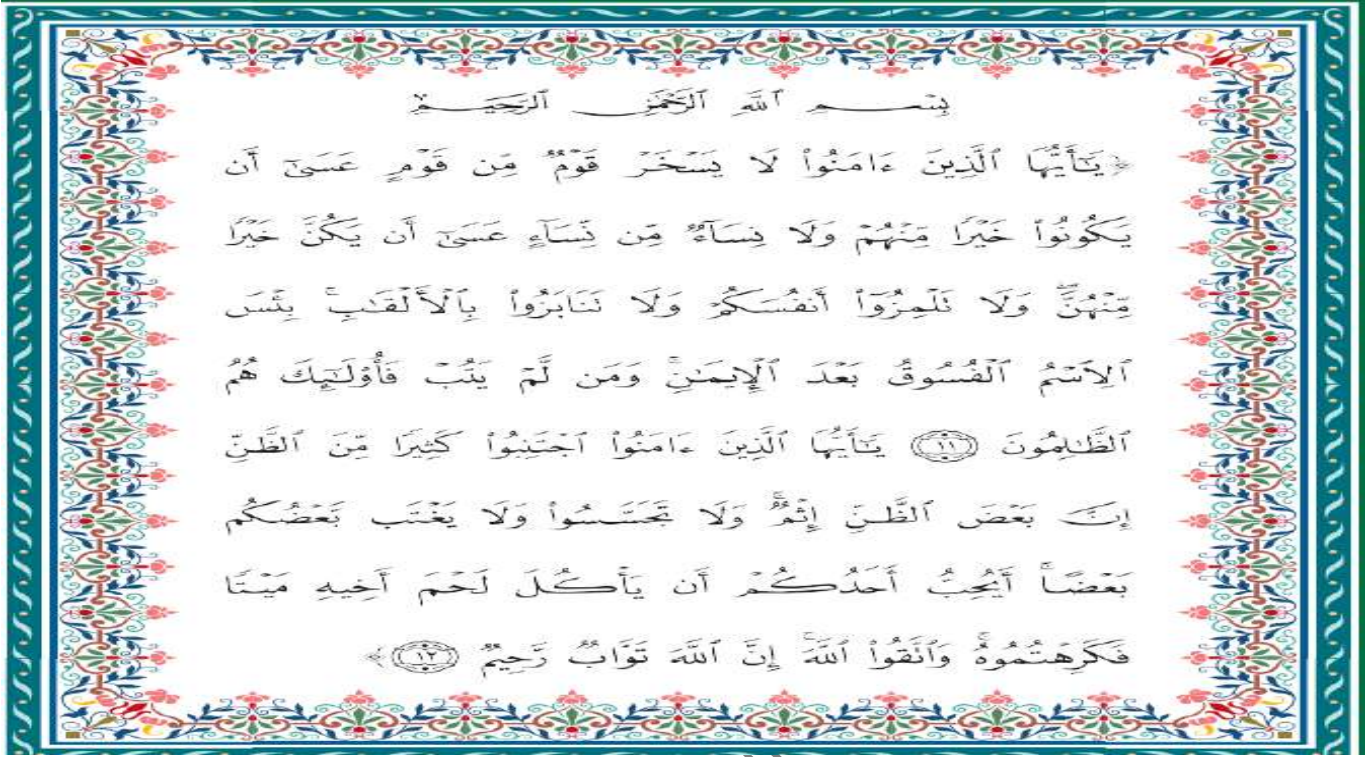 بِسْمِ ٱللَّهِ ٱلرَّحْمَٰنِ ٱلرَّحِيمِ
﴿يَٰٓأَيُّهَا ٱلَّذِينَ ءَامَنُوا۟ لَا يَسْخَرْ قَوْمٌ مِّن قَوْمٍ عَسَىٰٓ أَن
يَكُونُوا۟ خَيْرًا مِّنْهُمْ وَلَا نِسَآءٌ مِّن نِّسَآءٍ عَسَىٰٓ أَن يَكُنَّ خَيْرًا
مِّنْهُنَّ ۖ وَلَا تَلْمِزُوٓا۟ أَنفُسَكُمْ وَلَا تَنَابَزُوا۟ بِٱلْأَلْقَٰبِ ۖ بِئْسَ
ٱلِٱسْمُ ٱلْفُسُوقُ بَعْدَ ٱلْإِيمَٰنِ ۚ وَمَن لَّمْ يَتُبْ فَأُو۟لَٰٓئِكَ هُمُ
ٱلظَّٰلِمُونَ ١١ يَٰٓأَيُّهَا ٱلَّذِينَ ءَامَنُوا۟ ٱجْتَنِبُوا۟ كَثِيرًا مِّنَ ٱلظَّنِّ
إِنَّ بَعْضَ ٱلظَّنِّ إِثْمٌ ۖ وَلَا تَجَسَّسُوا۟ وَلَا يَغْتَب بَّعْضُكُم
بَعْضًا ۚ أَيُحِبُّ أَحَدُكُمْ أَن يَأْكُلَ لَحْمَ أَخِيهِ مَيْتًا
فَكَرِهْتُمُوهُ ۚ وَٱتَّقُوا۟ ٱللَّهَ ۚ إِنَّ ٱللَّهَ تَوَّابٌ رَّحِيمٌ ١٢﴾